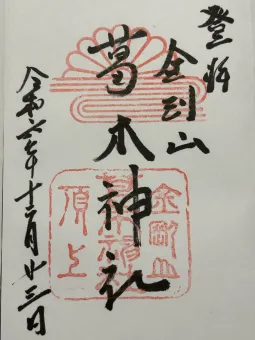 登拝
金剛山
葛木神社
金剛山
葛木神社
頂上
令和六年十二月廿三日